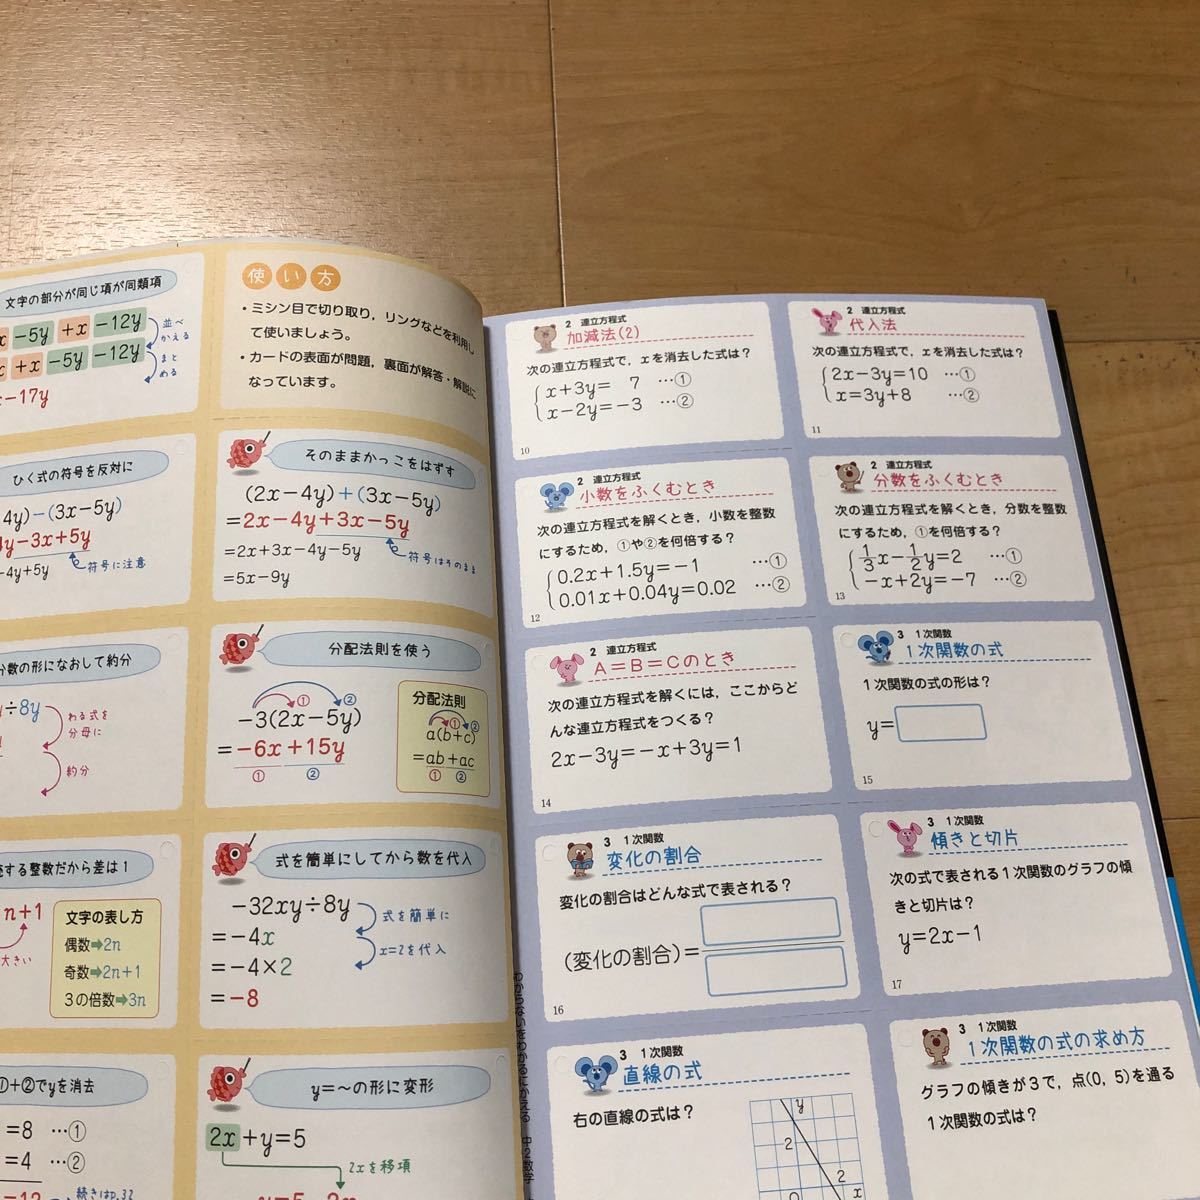 文字の部分が同じ項が同類項
-5y +x -12y
+x -5y -12y
並べ
かえる
まと
める
-17y
使い方
・ミシン目で切り取り，リングなどを利用し
て使いましょう。
・カードの表面が問題，裏面が解答・解説に
なっています。
ひく式の符号を反対に
4y)-(3x-5y)
4y-3x+5y
-4y+5y
符号に注意
そのままかっこをはずす
(2x-4y)+(3x-5y)
=2x-4y+3x-5y
=2x+3x-4y-5y
符号はそのまま
=5x-9y
分数の形になおして約分
÷8y
わる式を
分母に
約分
分配法則を使う
① ②
-3(2x-5y)
=-6x+15y
① ②
分配法則
① ②
a(b+c)
=ab+ac
① ②
する整数だから差は1
n+1
大きい
文字の表し方
偶数➡2n
奇数➡2n+1
3の倍数➡3n
式を簡単にしてから数を代入
-32xy÷8y
式を簡単に
=-4x
x=2を代入
=-4×2
=-8
①+②でyを消去
=8 …①
=4 …②
=12
続きはp.32
y=～の形に変形
2x+y=5
2xを移項
わからないをわかるにかえる 中2数学
2 連立方程式
加減法(2)
次の連立方程式で，xを消去した式は？
x+3y= 7 …①
x-2y=-3 …②
10
2 連立方程式
代入法
次の連立方程式で，xを消去した式は？
2x-3y=10 …①
x=3y+8 …②
11
2 連立方程式
小数をふくむとき
次の連立方程式を解くとき，小数を整数
にするため，①や②を何倍する？
0.2x+1.5y=-1 …①
0.01x+0.04y=0.02 …②
12
2 連立方程式
分数をふくむとき
次の連立方程式を解くとき，分数を整数
にするため，①を何倍する？
1/3x-1/2y=2 …①
-x+2y=-7 …②
13
2 連立方程式
A=B=Cのとき
次の連立方程式を解くには，ここからど
んな連立方程式をつくる？
2x-3y=-x+3y=1
14
3 1次関数
1次関数の式
1次関数の式の形は？
y=
15
3 1次関数
変化の割合
変化の割合はどんな式で表される？
(変化の割合)=
16
3 1次関数
傾きと切片
次の式で表される1次関数のグラフの傾
きと切片は？
y=2x-1
17
3 1次関数
直線の式
右の直線の式は？
y
2
2
0
x
3 1次関数
1次関数の式の求め方
グラフの傾きが3で，点(0, 5)を通る
1次関数の式は？